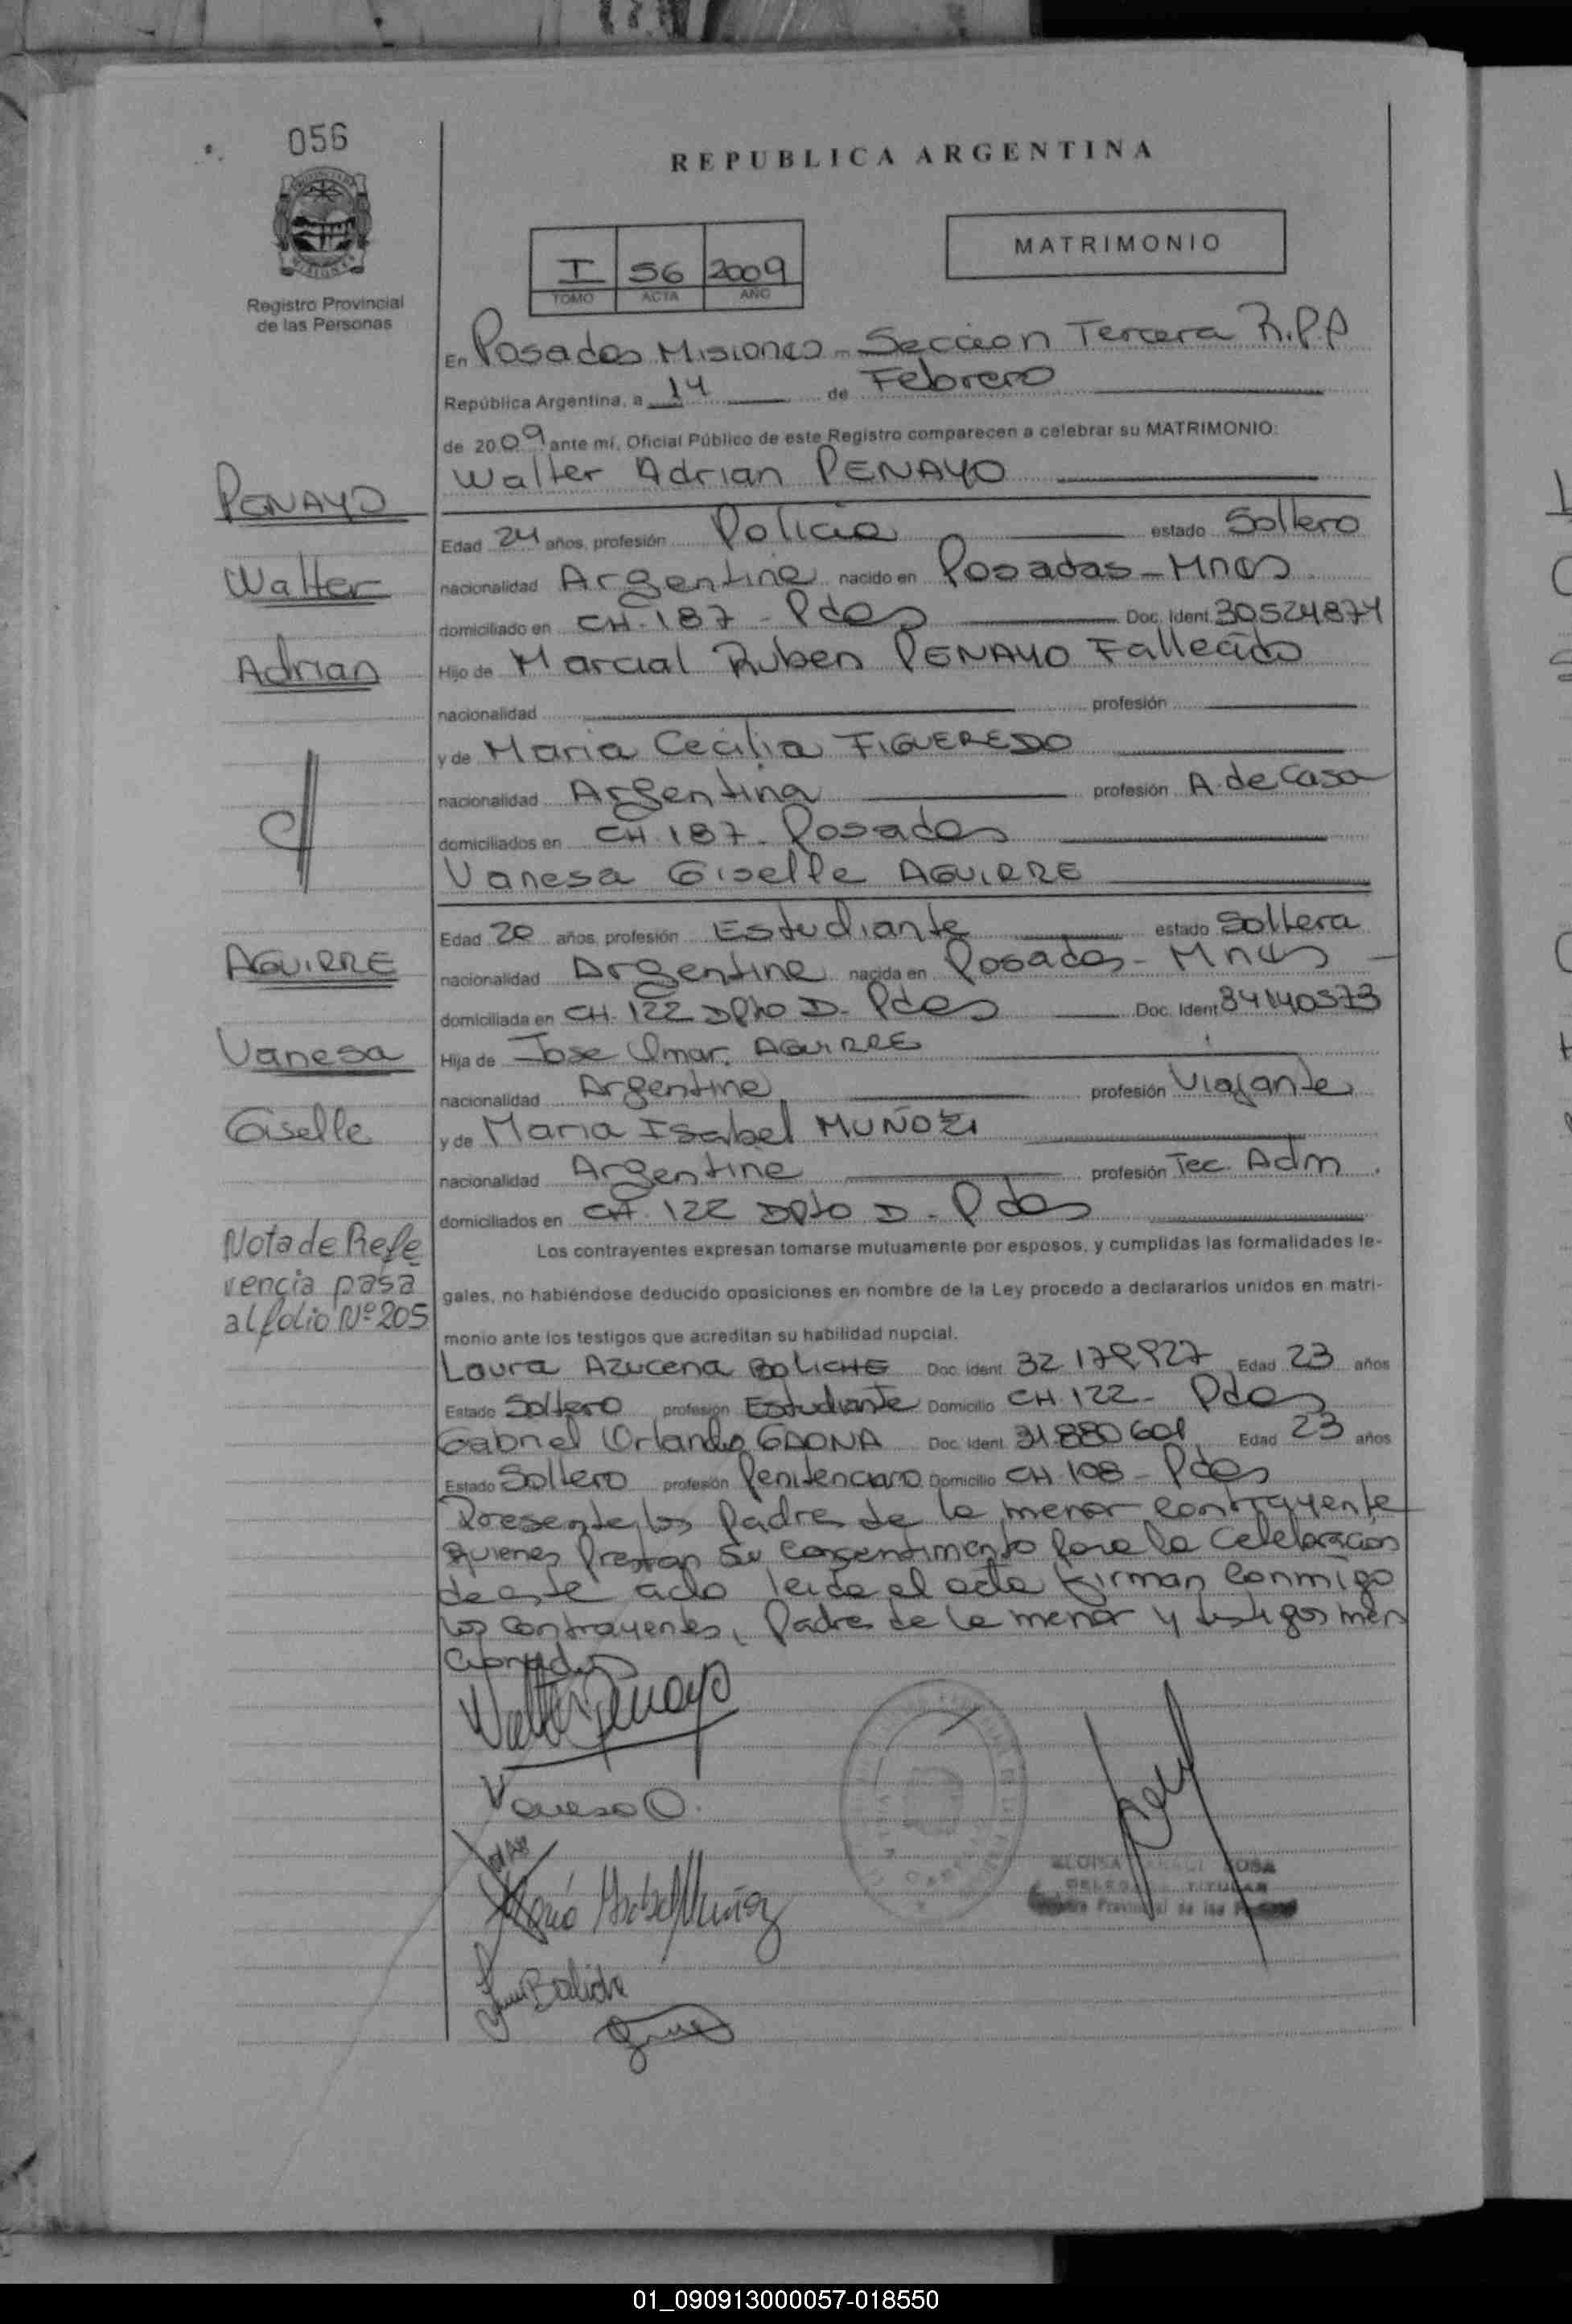 056
REPUBLICA ARGENTINA
MATRIMONIO
I 56 2009
TOMO ACTA AÑO
Registro Provincial
de las Personas
En Posadas Misiones - Seccion Tercera R.P.P
República Argentina, a 14 de Febrero
de 2009 ante mí, Oficial Público de este Registro comparecen a celebrar su MATRIMONIO:
Walter Adrian PENAYO
PENAYO
Walter
Adrian
c/
Edad 24 años, profesión Policia estado Soltero
nacionalidad Argentina nacido en Posadas - Mnes
domiciliado en CH. 187 - Pdas Doc. Ident. 30524874
Hijo de Marcial Ruben PENAYO Fallecido
nacionalidad profesión
y de Maria Cecilia FIGUEREDO
nacionalidad Argentina profesión A. de Casa
domiciliados en CH. 187 - Posadas
Vanesa Giselle AGUIRRE
AGUIRRE
Vanesa
Giselle
Edad 20 años, profesión Estudiante estado Soltera
nacionalidad Argentina nacida en Posadas - Mnes
domiciliada en CH. 122 Dpto D - Pdas Doc. Ident 34140573
Hija de Jose Omar AGUIRRE
nacionalidad Argentina profesión Viajante
y de Maria Isabel MUÑOZ
nacionalidad Argentina profesión Tec. Adm
domiciliados en CH. 122 Dpto D - Pdas
Nota de Refe
rencia pasa
al folio Nº 205
Los contrayentes expresan tomarse mutuamente por esposos, y cumplidas las formalidades le-
gales, no habiéndose deducido oposiciones en nombre de la Ley procedo a declararlos unidos en matri-
monio ante los testigos que acreditan su habilidad nupcial.
Laura Azucena BOLICHE Doc. Ident. Edad 23 años
Estado Soltero profesión Estudiante Domicilio CH. 122 - Pdas
Gabriel Orlando GAONA Doc. Ident. 31.880601 Edad 23 años
Estado Soltero profesión Penitenciario Domicilio CH. 108 - Pdas
Presente los Padres de la menor contrayente
quienes Prestan su consentimento para la Celebracion
de este acto leida el acta firman conmigo
los contrayentes, Padres de la menor y testigos men
cionados
Walter Penayo
Vanesa
Maria Isabel Muñoz
Boliche
SOSA
TITULAR
01_090913000057-018550